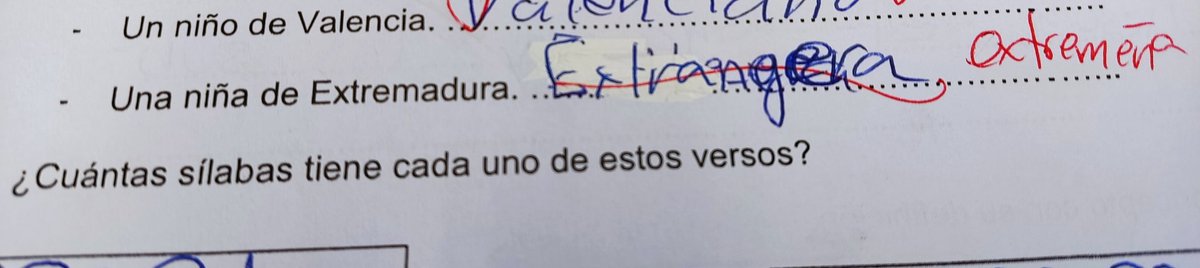 - Un niño de Valencia. Valenciano
- Una niña de Extremadura. Extrangera extremeña
¿Cuántas sílabas tiene cada uno de estos versos?